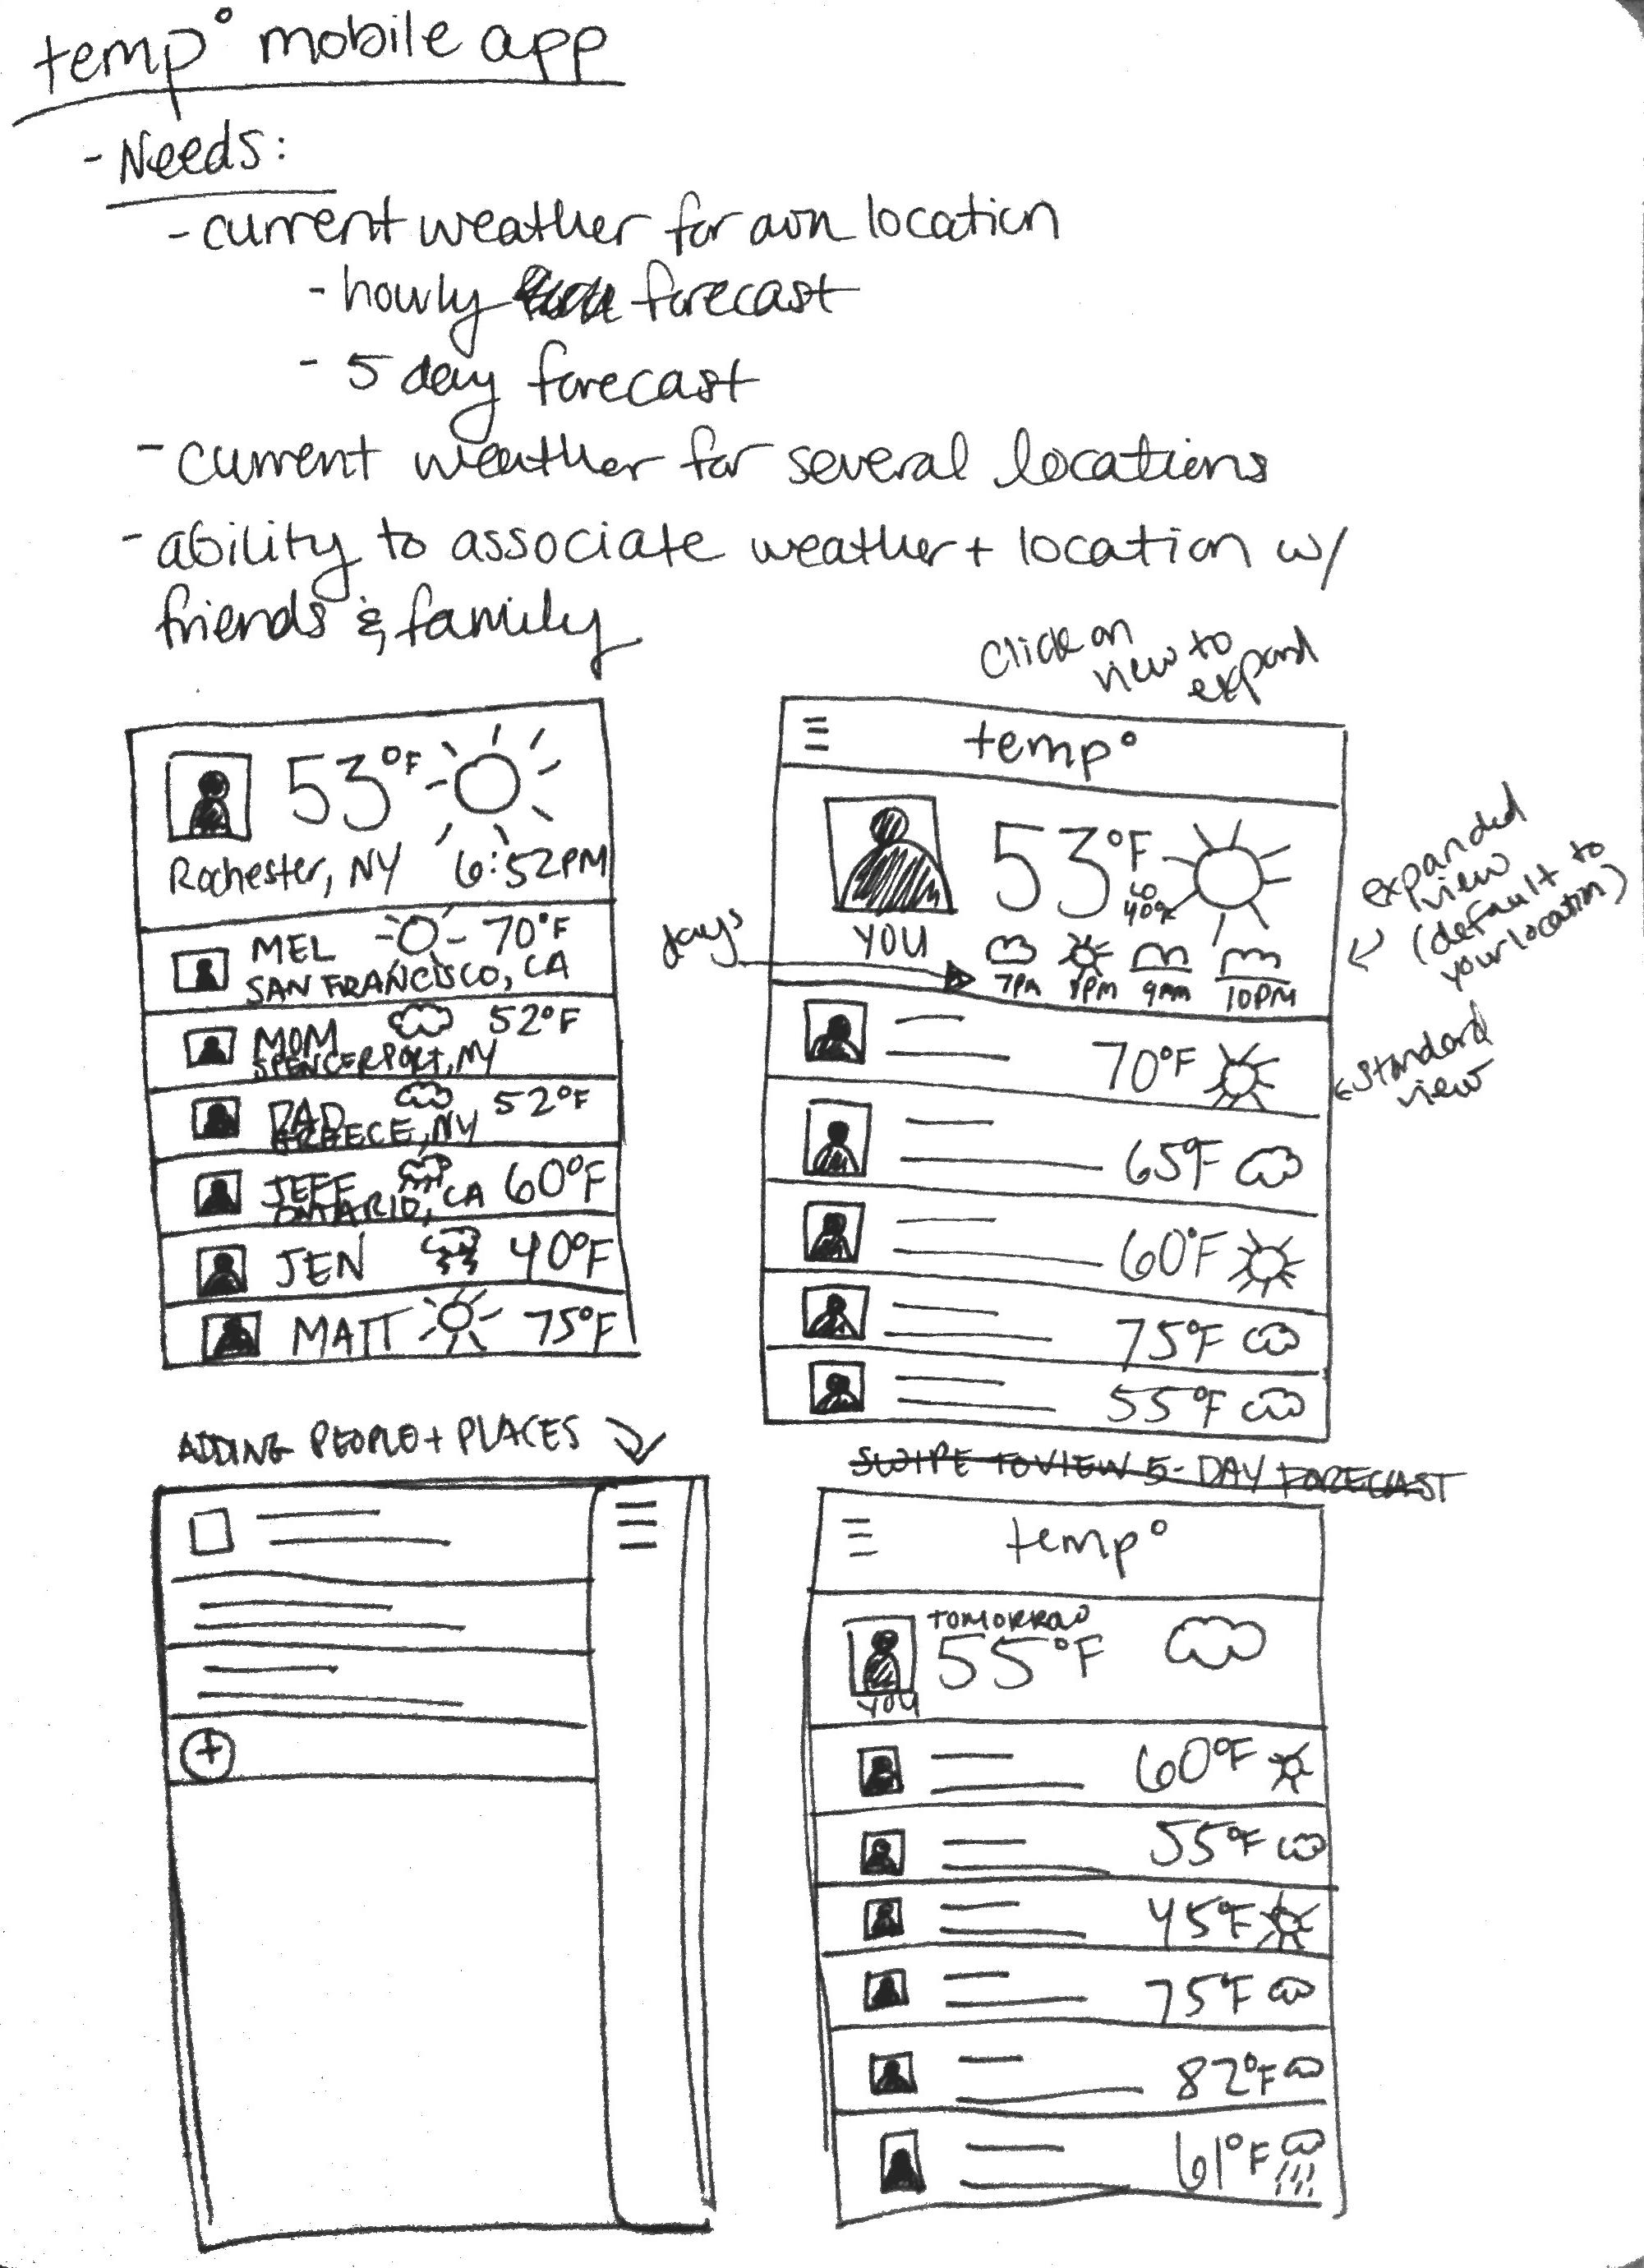 temp° mobile app
- Needs:
- current weather for own location
- hourly forecast
- 5 day forecast
- current weather for several locations
- ability to associate weather + location w/
friends & family
click on
view to
expand
53°F
Rochester, NY 6:52PM
MEL 70°F
SAN FRANCISCO, CA
MOM 52°F
SPENCERPORT, NY
DAD 52°F
GREECE, NY
JEFF 60°F
ONTARIO, CA
JEN 40°F
MATT 75°F
temp°
53°F
60
40%
YOU
7PM 8PM 9PM 10PM
days
70°F
65°F
60°F
75°F
55°F
expanded
view
(default to
your location)
standard
view
ADDING PEOPLE + PLACES
+
SWIPE TO VIEW 5-DAY FORECAST
temp°
TOMORROW
55°F
YOU
60°F
55°F
45°F
75°F
82°F
61°F